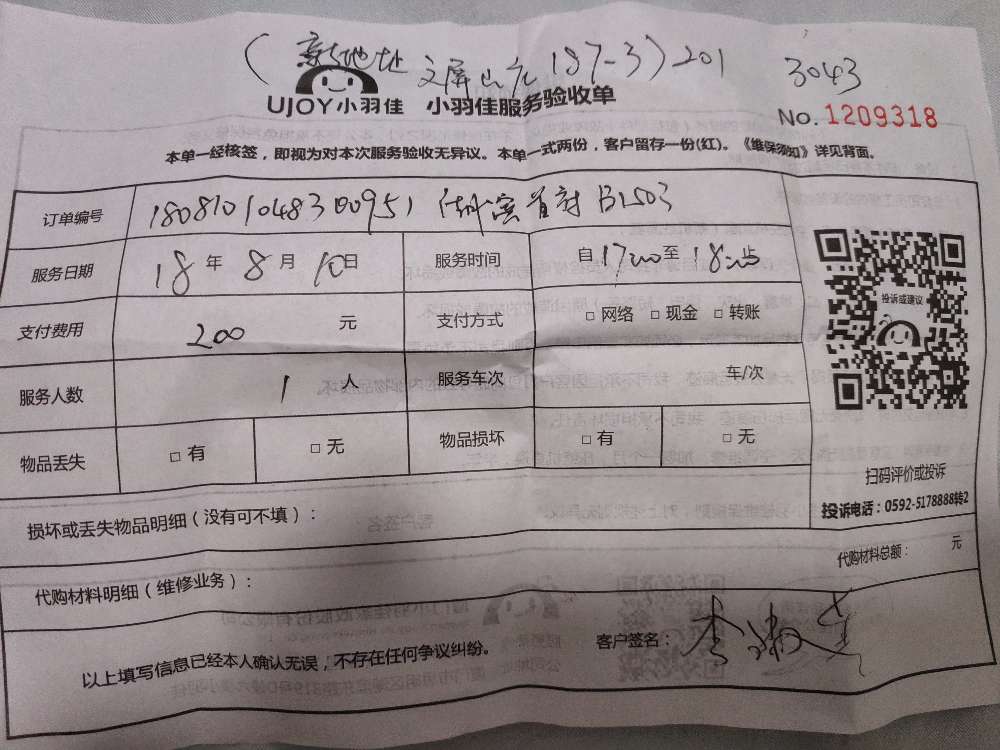 (新地址 文屏山庄 187-3)201 3043
UJOY小羽佳 小羽佳服务验收单
No. 1209318
本单一经核签，即视为对本次服务验收无异议。本单一式两份，客户留存一份(红)。《维保须知》详见背面。
订单编号 1808101048300951 湖滨首府 B1503
服务日期 18 年 8 月 10 日 服务时间 自 17:00 至 18:00 止
支付费用 200 元 支付方式 □ 网络 □ 现金 □ 转账
投诉或建议
服务人数 1 人 服务车次 车/次
物品丢失 □ 有 □ 无 物品损坏 □ 有 □ 无
扫码评价或投诉
投诉电话：0592-5178888转2
损坏或丢失物品明细（没有可不填）：
代购材料总额： 元
代购材料明细（维修业务）：
以上填写信息已经本人确认无误，不存在任何争议纠纷。
客户签名： 李